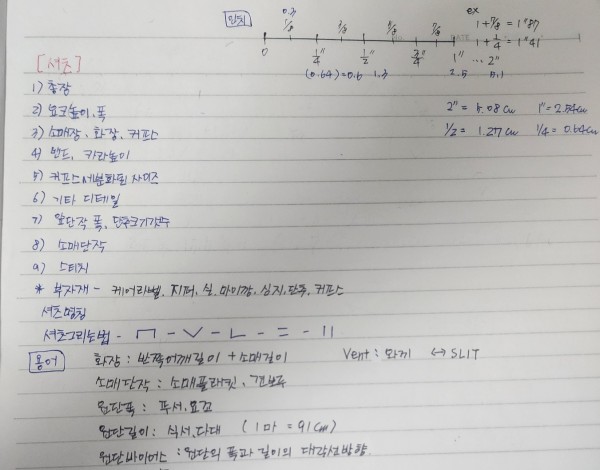 인치 0.3 1/8 3/8 5/8 7/8 ex 1 + 7/8 = 1"87
1 + 1/4 = 1"41
0 1/4" 1/2" 3/4" 1" ... 2"
(0.64)=0.6 1.3 2.5 5.1
[셔츠]
1) 총장
2) 요크높이, 폭 2" = 5.08cm 1" = 2.54cm
3) 소매장, 화장, 커프스 1/2 = 1.27cm 1/4 = 0.64cm
4) 밴드, 카라높이
5) 커프스 세분화된 사이즈
6) 기타 디테일
7) 앞단작 폭, 단추크기갯수
8) 소매단작
9) 스티치
* 부자재 - 케어라벨, 지퍼, 실, 마이깡, 심지, 단추, 커프스
셔츠명칭
셔츠그리는법 -
용어 화장 : 반쪽어깨길이 + 소매길이 Vent : 와끼 ↔ SLIT
소매단작 : 소매플라켓, 겐보루
원단폭 : 푸서, 요꼬
원단길이 : 식서, 다대 (1마 = 91cm)
원단바이어스 : 원단의 폭과 길이의 대각선방향.